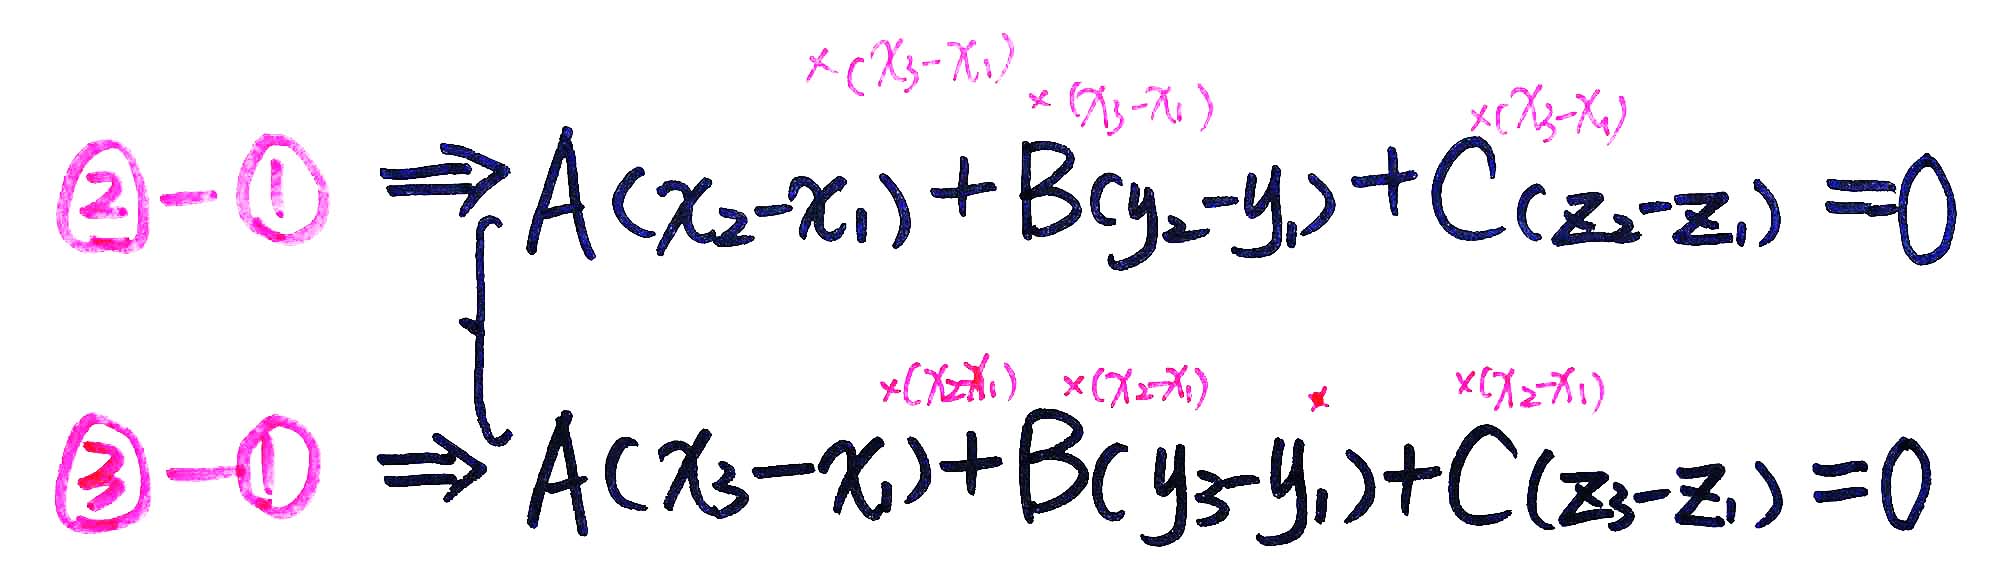 ×(x₃-x₁) ×(x₃-x₁) ×(x₃-x₁)
②-① ⇒ A(x₂-x₁)+B(y₂-y₁)+C(z₂-z₁)=0
×(x₂-x₁) ×(x₂-x₁) × ×(x₂-x₁)
③-① ⇒ A(x₃-x₁)+B(y₃-y₁)+C(z₃-z₁)=0